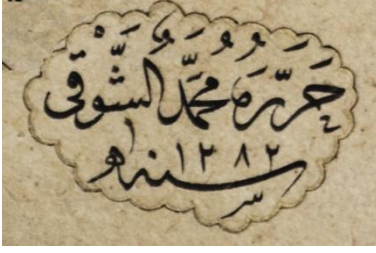 حَرَّرَهُ مُحَمَّدُ الشَّوْقِى
سنه ١٢٨٢